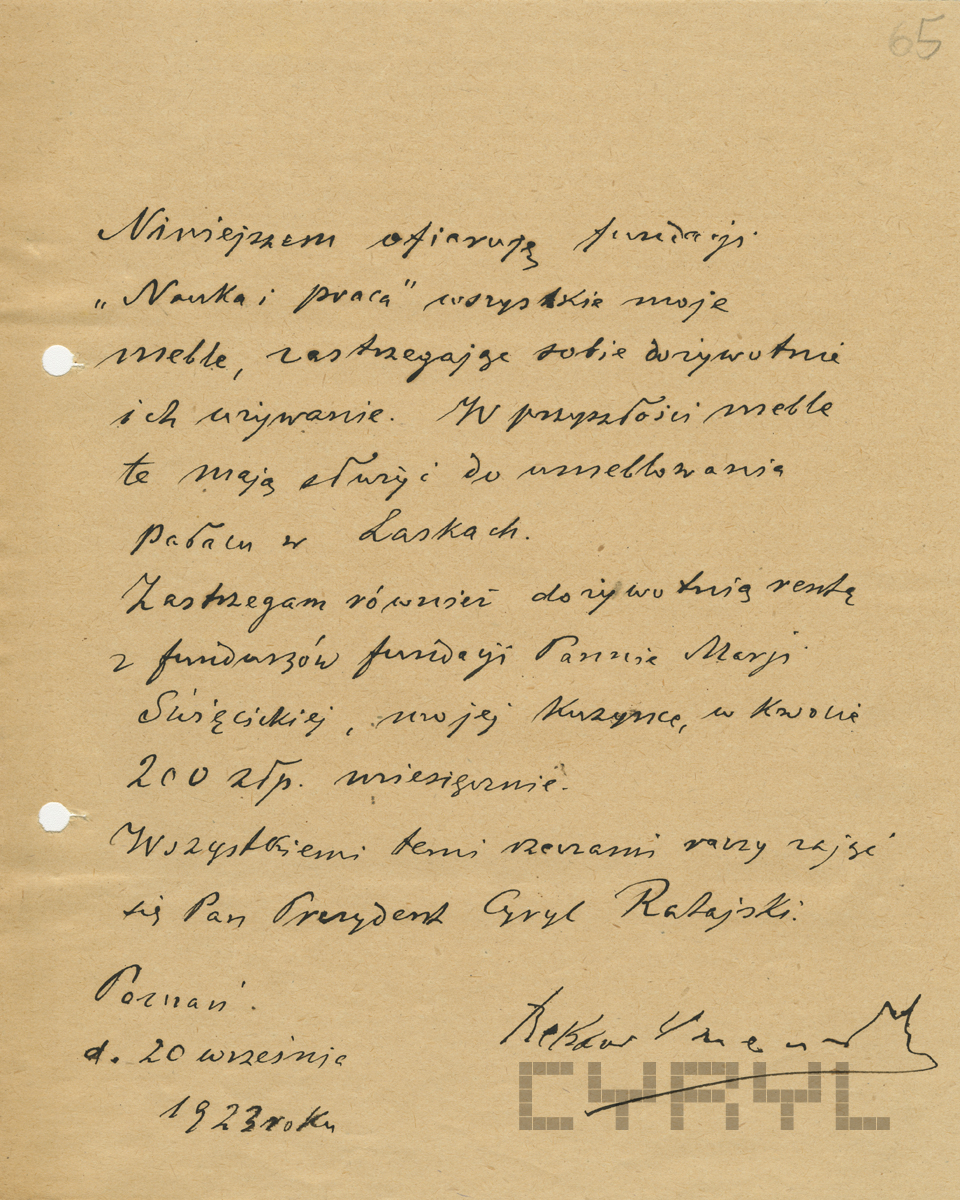 65
Niniejszem ofiaruję fundacji
„Nauka i praca" wszystkie moje
meble, zastrzegając sobie dożywotnie
ich używanie. W przyszłości meble
te mają służyć do umeblowania
pałacu w Łaskach.
Zastrzegam również dożywotnią rentę
z funduszów fundacji Pannie Marji
Święcickiej, mojej kuzynce, w kwocie
200 złp. miesięcznie.
Wszystkiemi temi rzeczami raczy zająć
się Pan Prezydent Cyryl Ratajski.
Poznań.
d. 20 września
1923 roku
CYRYL